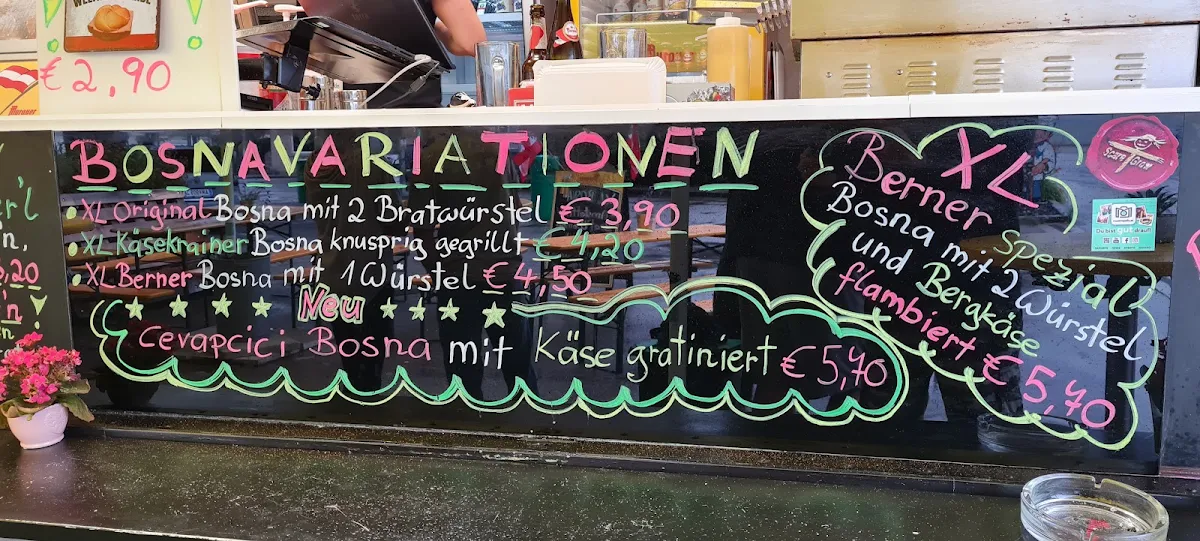 € 2,90
BOSNAVARIATIONEN
• XL Original Bosna mit 2 Bratwürstel € 3,90
• XL Käsekrainer Bosna knusprig gegrillt € 4,20
• XL Berner Bosna mit 1 Würstel € 4,50
Neu
Cevapcici Bosna mit Käse gratiniert € 5,70
XL
Berner Spezial
Bosna mit 2 Würstel
und Bergkäse
flambiert € 5,70
Du bist gut drauf!